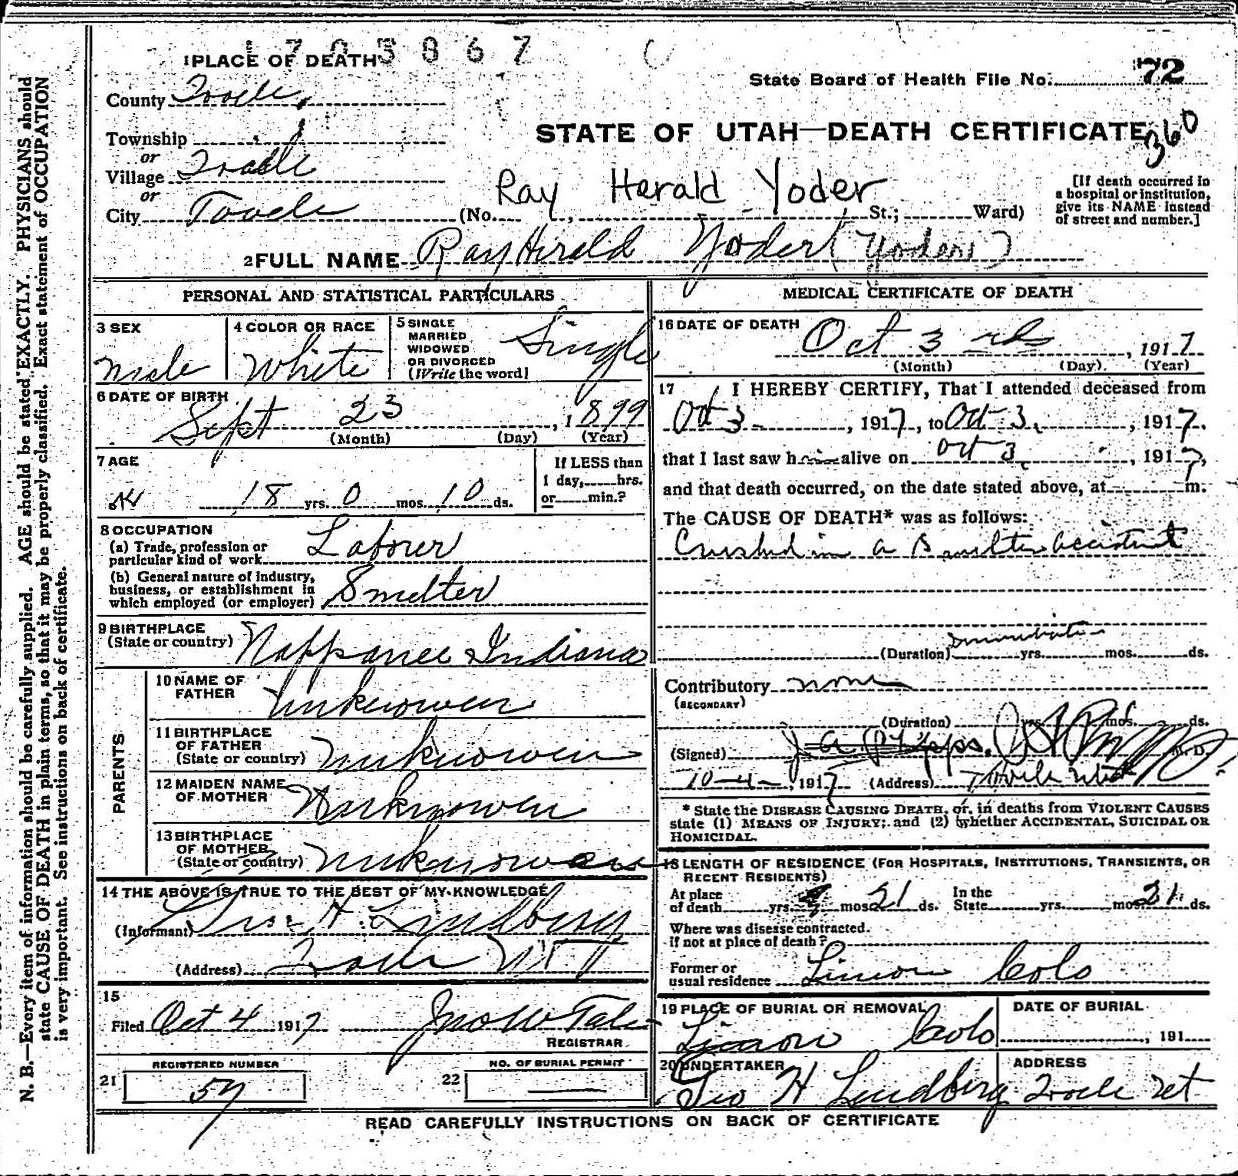 1703867
1 PLACE OF DEATH
State Board of Health File No. 72
County Tooele
STATE OF UTAH—DEATH CERTIFICATE 360
Township
or
Village Tooele
or
City Tooele (No. Ray Herald Yoder St.; Ward)
[If death occurred in a hospital or institution, give its NAME instead of street and number.]
2 FULL NAME Ray Herald Yoder (Yoders)
PERSONAL AND STATISTICAL PARTICULARS
3 SEX
Male
4 COLOR OR RACE
White
5 SINGLE
MARRIED
WIDOWED
OR DIVORCED
(Write the word)
Single
6 DATE OF BIRTH
Sept 23, 1899
(Month) (Day) (Year)
7 AGE
18 yrs. 0 mos. 10 ds.
If LESS than
1 day, hrs.
or min.?
8 OCCUPATION
(a) Trade, profession or
particular kind of work Laborer
(b) General nature of industry,
business, or establishment in
which employed (or employer) Smelter
9 BIRTHPLACE
(State or country) Nappanee Indiana
PARENTS
10 NAME OF
FATHER Unknowen
11 BIRTHPLACE
OF FATHER
(State or country) Unknowen
12 MAIDEN NAME
OF MOTHER Unknowen
13 BIRTHPLACE
OF MOTHER
(State or country) Unknowen
14 THE ABOVE IS TRUE TO THE BEST OF MY KNOWLEDGE
(Informant) Geo. H. Lindberg
(Address) Tooele Ut
15
Filed Oct 4 1917 Jno W Tate
REGISTRAR
REGISTERED NUMBER
21 57
NO. OF BURIAL PERMIT
22
MEDICAL CERTIFICATE OF DEATH
16 DATE OF DEATH
Oct 3rd, 1917
(Month) (Day). (Year)
17 I HEREBY CERTIFY, That I attended deceased from
Oct 3, 1917, to Oct 3, 1917.
that I last saw him alive on Oct 3, 1917,
and that death occurred, on the date stated above, at m.
The CAUSE OF DEATH* was as follows:
Crushed in a Smelter accident
(Duration) Immediate yrs. mos. ds.
Contributory none
(SECONDARY)
(Duration) yrs. mos. ds.
(Signed) J. A. Phipps. M. D.
10-4-, 1917 (Address) Tooele Utah
* State the DISEASE CAUSING DEATH, or, in deaths from VIOLENT CAUSES
state (1) MEANS OF INJURY; and (2) whether ACCIDENTAL, SUICIDAL OR
HOMICIDAL.
18 LENGTH OF RESIDENCE (FOR HOSPITALS, INSTITUTIONS, TRANSIENTS, OR
RECENT RESIDENTS)
At place
of death yrs. mos. 21 ds. In the
State yrs. mos. 21 ds.
Where was disease contracted.
if not at place of death?
Former or
usual residence Limon Colo
19 PLACE OF BURIAL OR REMOVAL
Limon Colo
DATE OF BURIAL
, 191
20 UNDERTAKER
Geo H Lindberg
ADDRESS
Tooele Ut
READ CAREFULLY INSTRUCTIONS ON BACK OF CERTIFICATE
N. B.—Every item of information should be carefully supplied. AGE should be stated EXACTLY. PHYSICIANS should
state CAUSE OF DEATH in plain terms, so that it may be properly classified. Exact statement of OCCUPATION
is very important. See instructions on back of certificate.